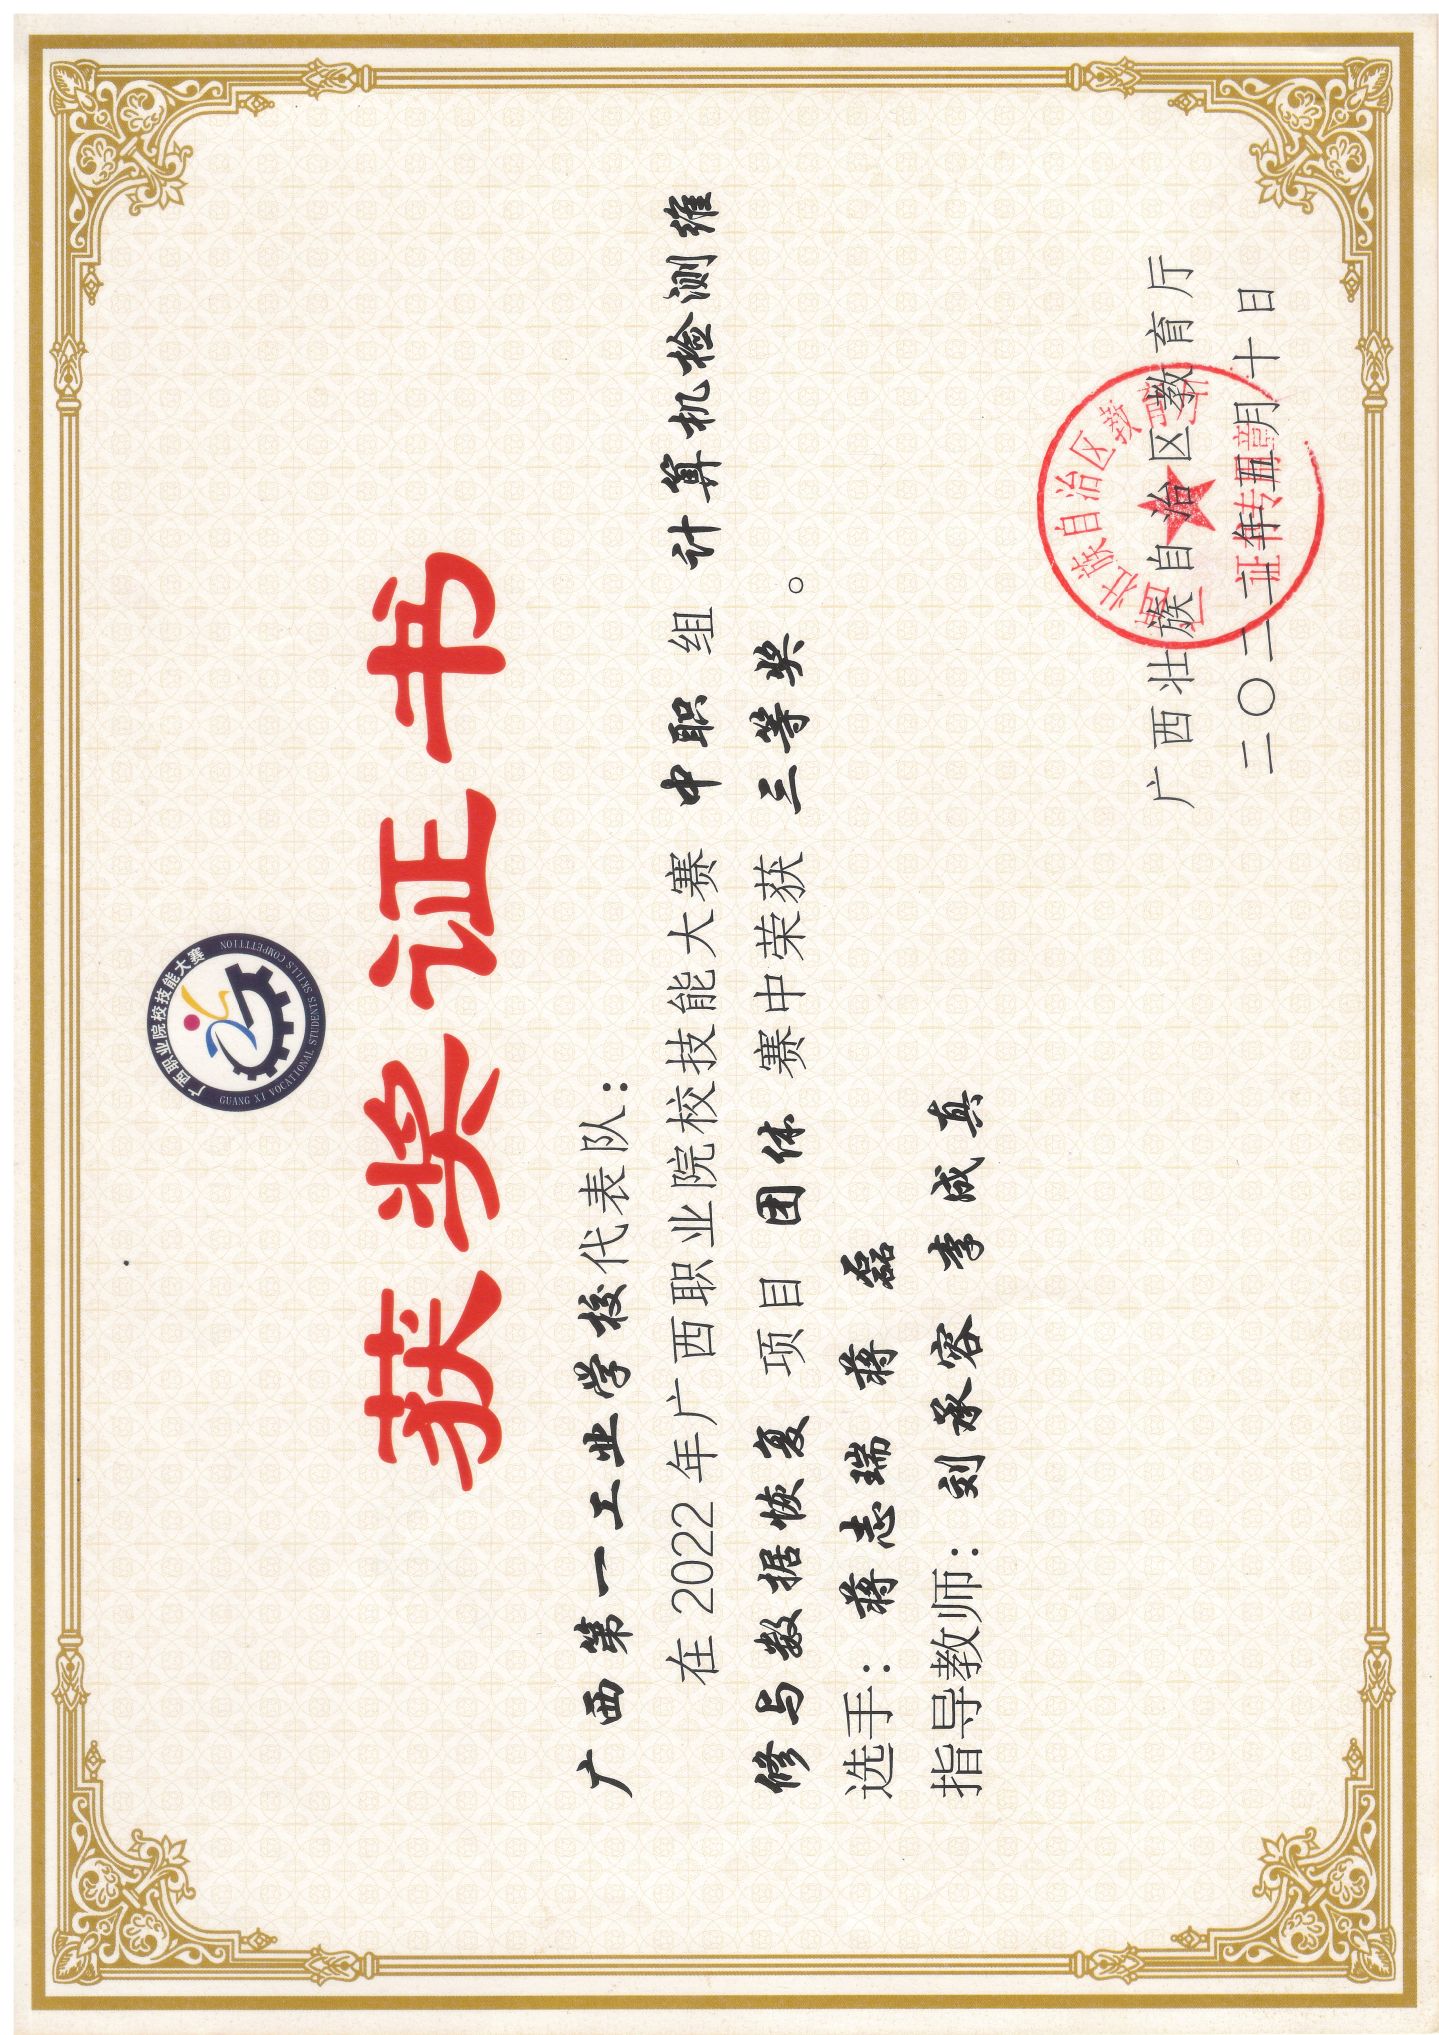 广西职业院校技能大赛
GUANG XI VOCATIONAL STUDENTS SKILLS COMPETITION
获奖证书
广西第一工业学校代表队：
在 2022 年广西职业院校技能大赛 中职 组 计算机检测维
修与数据恢复 项目 团体 赛中荣获 三等奖。
选手：蒋志瑞 蒋 磊
指导教师：刘承容 李成真
广西壮族自治区教育厅
二〇二二年五月十日
广西壮族自治区教育厅
证书专用章